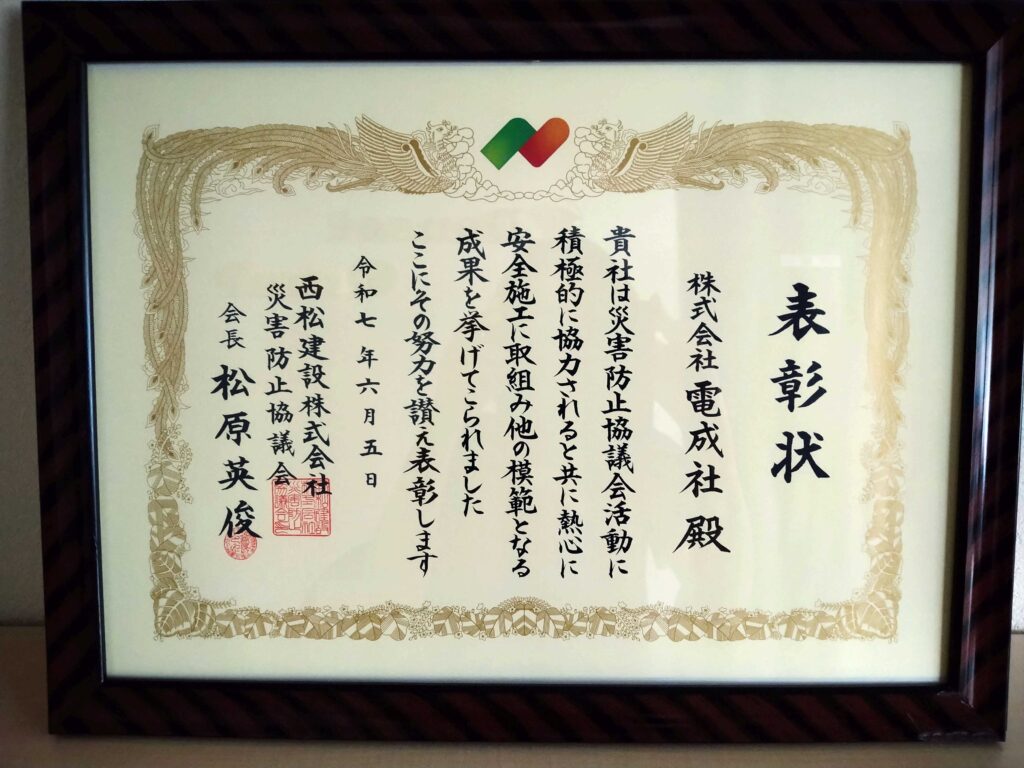 表彰状
株式会社電成社殿
貴社は災害防止協議会活動に
積極的に協力されると共に熱心に
安全施工に取組み他の模範となる
成果を挙げてこられました
ここにその努力を讃え表彰します
令和七年六月五日
西松建設株式会社
災害防止協議会
会長 松原英俊